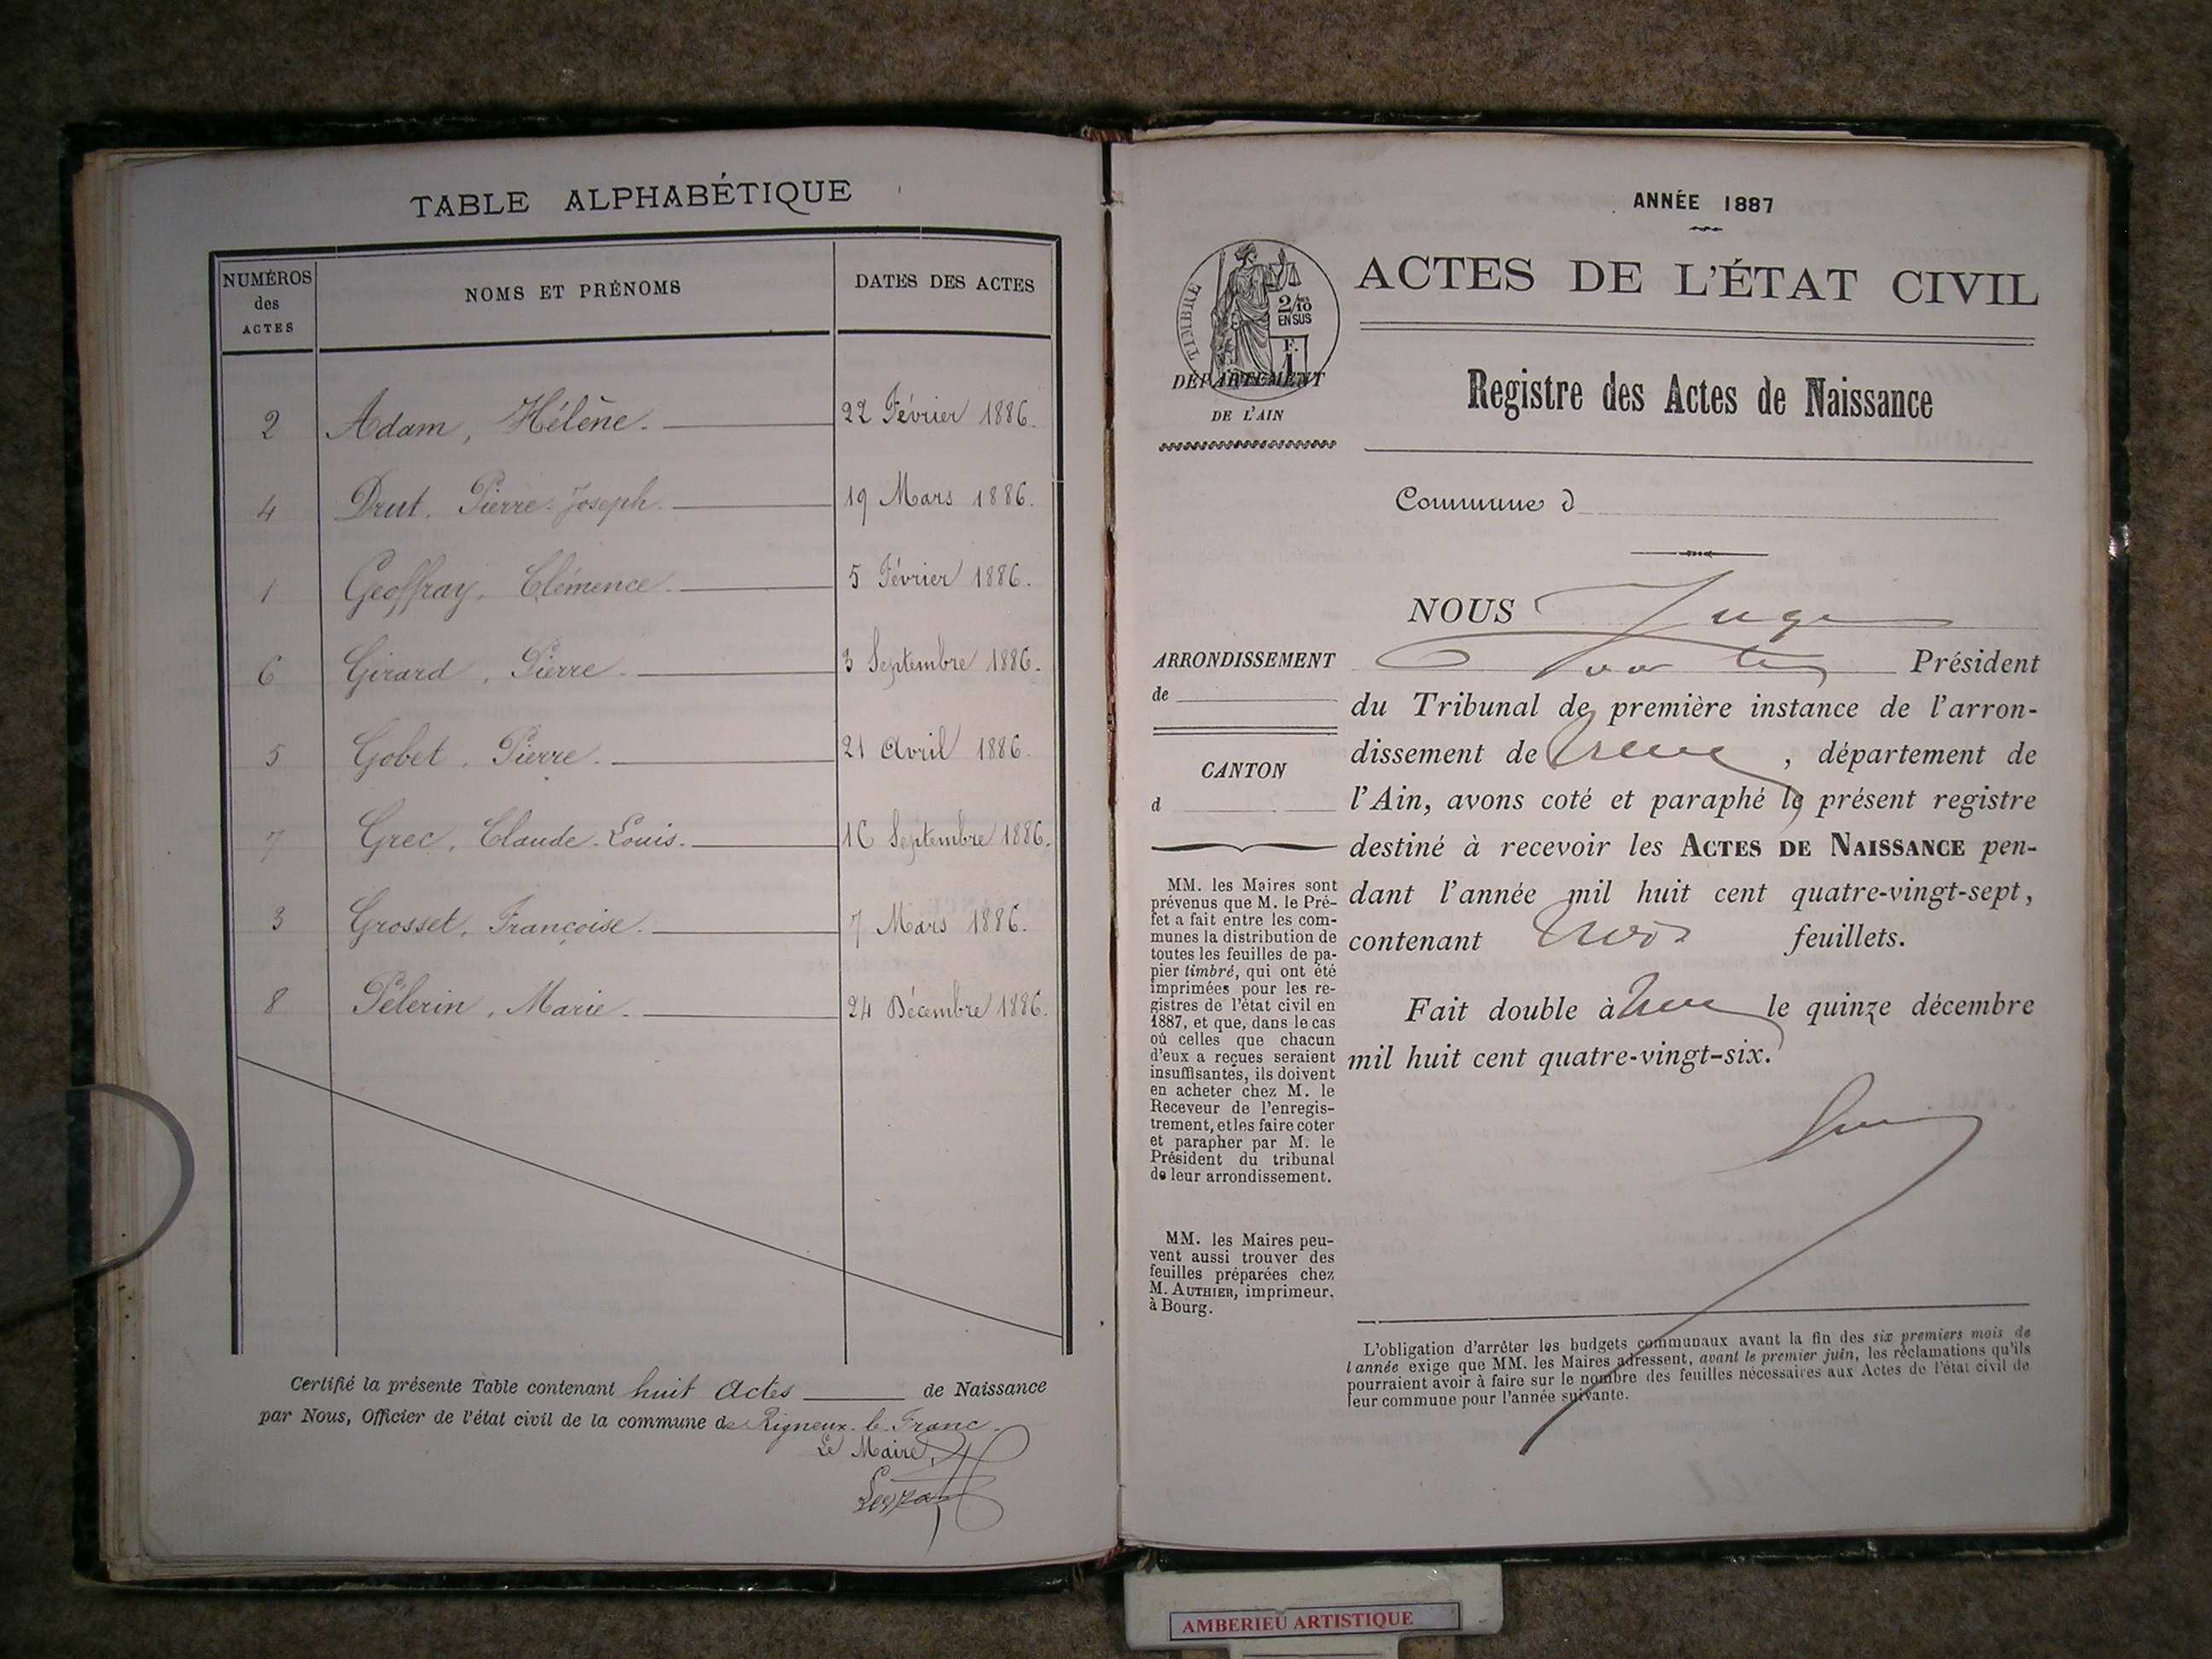 TABLE ALPHABÉTIQUE
NUMÉROS des ACTES
NOMS ET PRÉNOMS
DATES DES ACTES
2 Adam, Hélène. 22 Février 1886.
4 Drut. Pierre-Joseph. 19 Mars 1886.
1 Geoffray, Clémence. 5 Février 1886.
6 Girard, Pierre. 3 Septembre 1886.
5 Gobet, Pierre. 21 Avril 1886.
7 Grec, Claude-Louis. 16 Septembre 1886.
3 Grosset, Françoise. 7 Mars 1886.
8 Pélerin, Marie. 24 Décembre 1886.
Certifié la présente Table contenant huit actes de Naissance
par Nous, Officier de l'état civil de la commune de Rigneux-le-Franc.
Le Maire,
ANNÉE 1887
TIMBRE
2/10 EN SUS
F. 1
DÉPARTEMENT
DE L'AIN
ACTES DE L'ÉTAT CIVIL
Registre des Actes de Naissance
Commune d
NOUS Juge
ARRONDISSEMENT
de
CANTON
d
Président
du Tribunal de première instance de l'arron-
dissement de , département de
l'Ain, avons coté et paraphé le présent registre
destiné à recevoir les ACTES DE NAISSANCE pen-
dant l'année mil huit cent quatre-vingt-sept,
contenant trois feuillets.
Fait double à le quinze décembre
mil huit cent quatre-vingt-six.
MM. les Maires sont
prévenus que M. le Pré-
fet a fait entre les com-
munes la distribution de
toutes les feuilles de pa-
pier timbré, qui ont été
imprimées pour les re-
gistres de l'état civil en
1887, et que, dans le cas
où celles que chacun
d'eux a reçues seraient
insuffisantes, ils doivent
en acheter chez M. le
Receveur de l'enregis-
trement, et les faire coter
et parapher par M. le
Président du tribunal
de leur arrondissement.
MM. les Maires peu-
vent aussi trouver des
feuilles préparées chez
M. AUTHIER, imprimeur,
à Bourg.
L'obligation d'arrêter les budgets communaux avant la fin des six premiers mois de
l'année exige que MM. les Maires adressent, avant le premier juin, les réclamations qu'ils
pourraient avoir à faire sur le nombre des feuilles nécessaires aux Actes de l'état civil de
leur commune pour l'année suivante.
AMBERIEU ARTISTIQUE